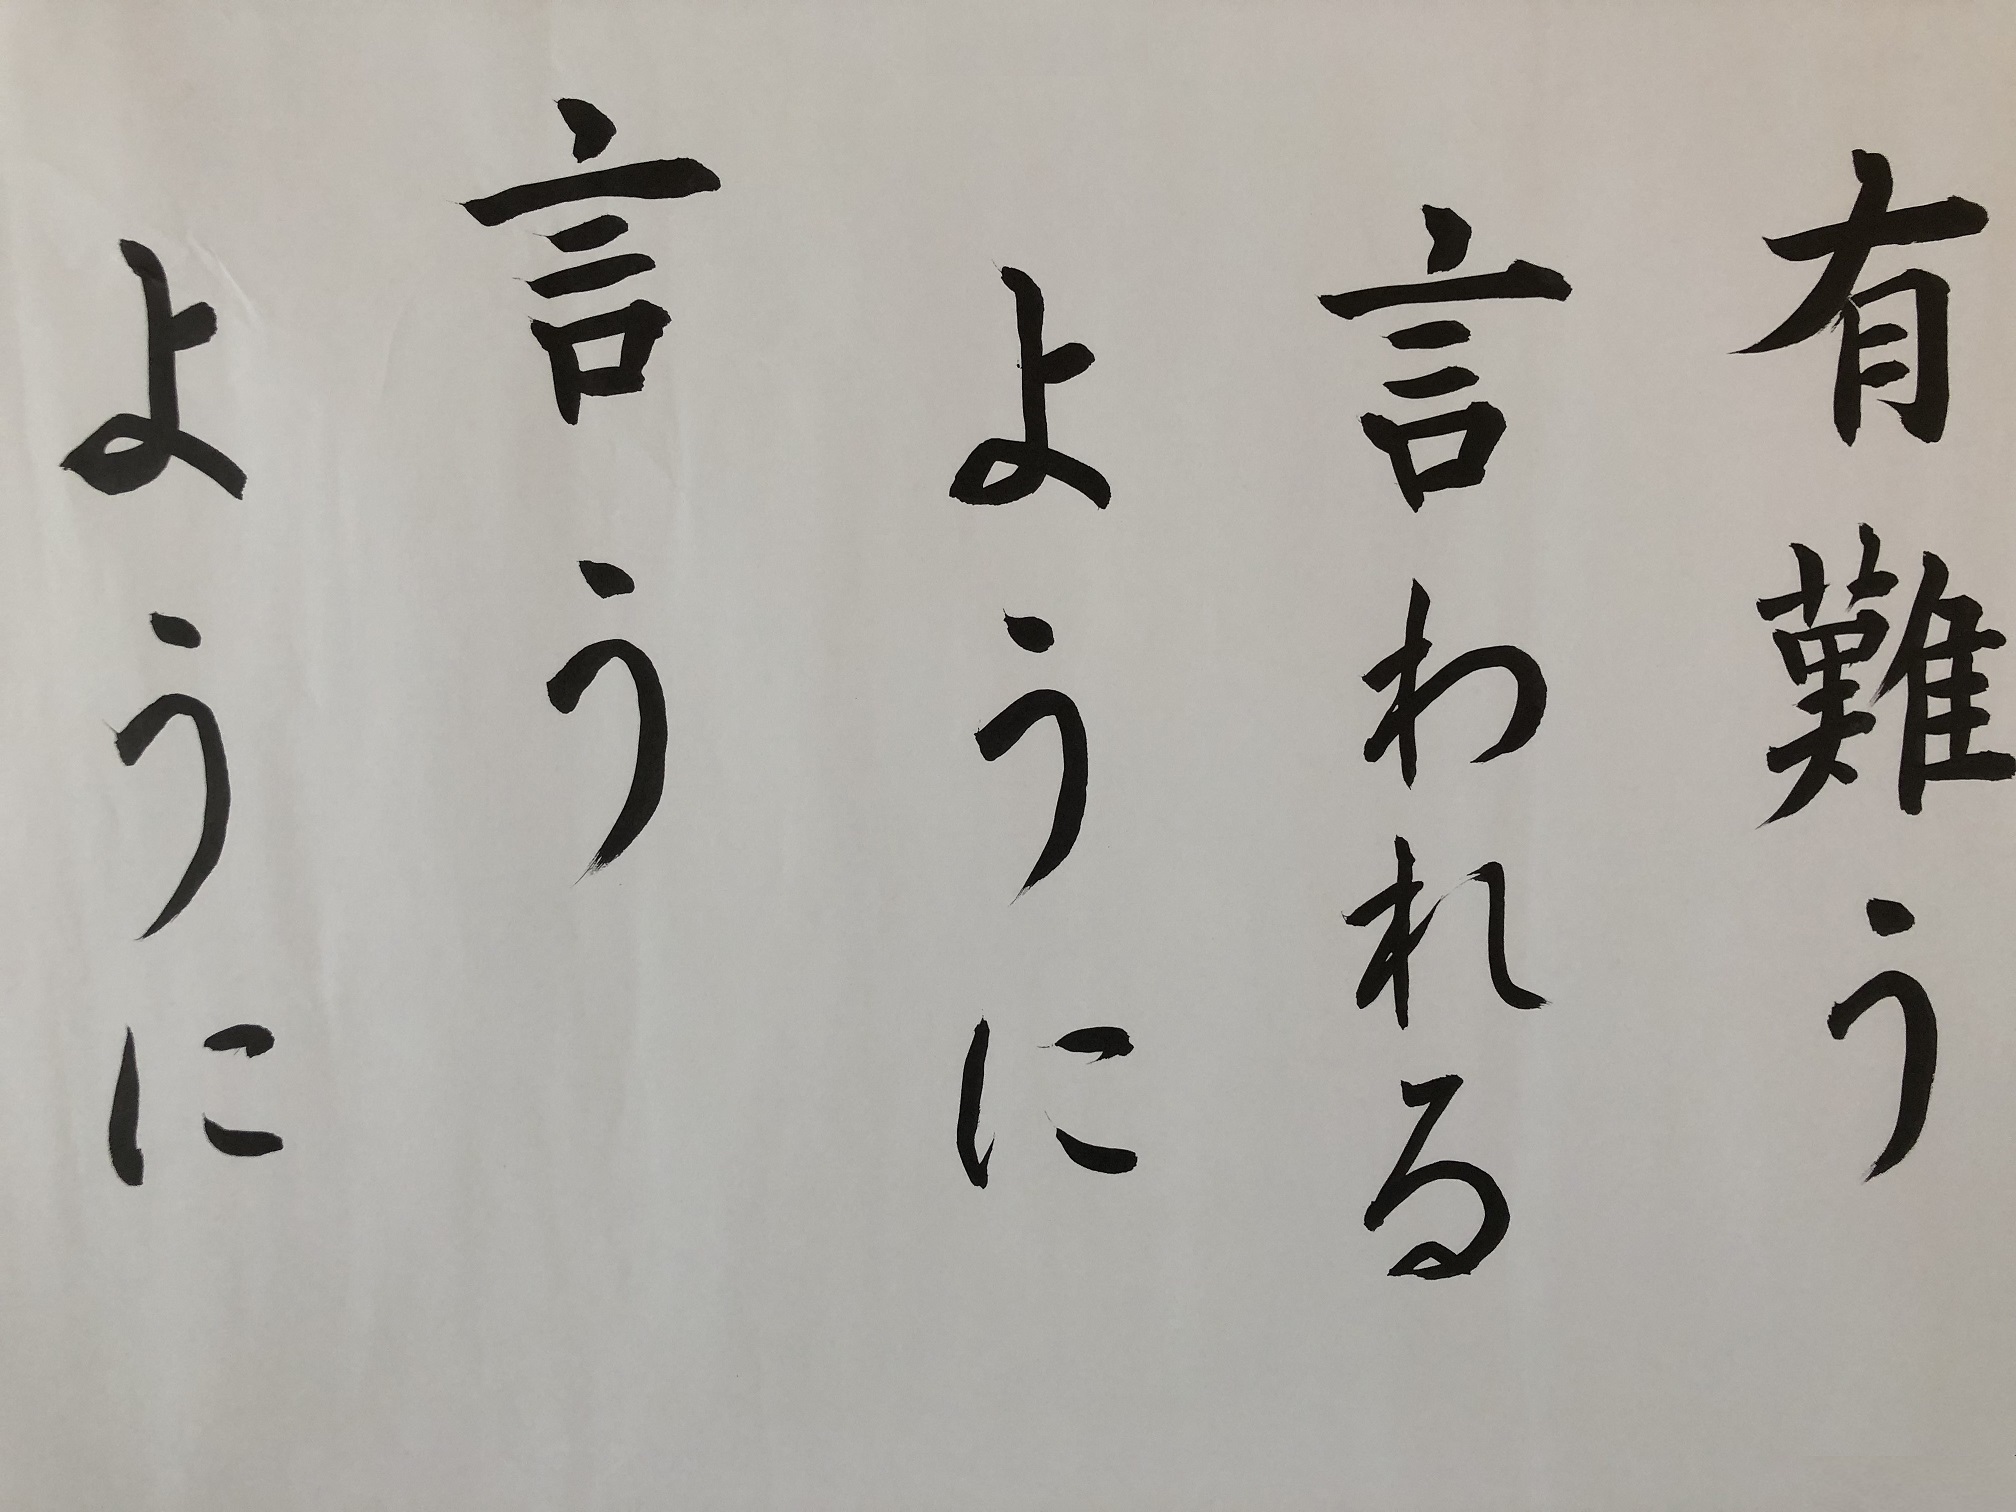 有難う
言われる
ように
言う
ように